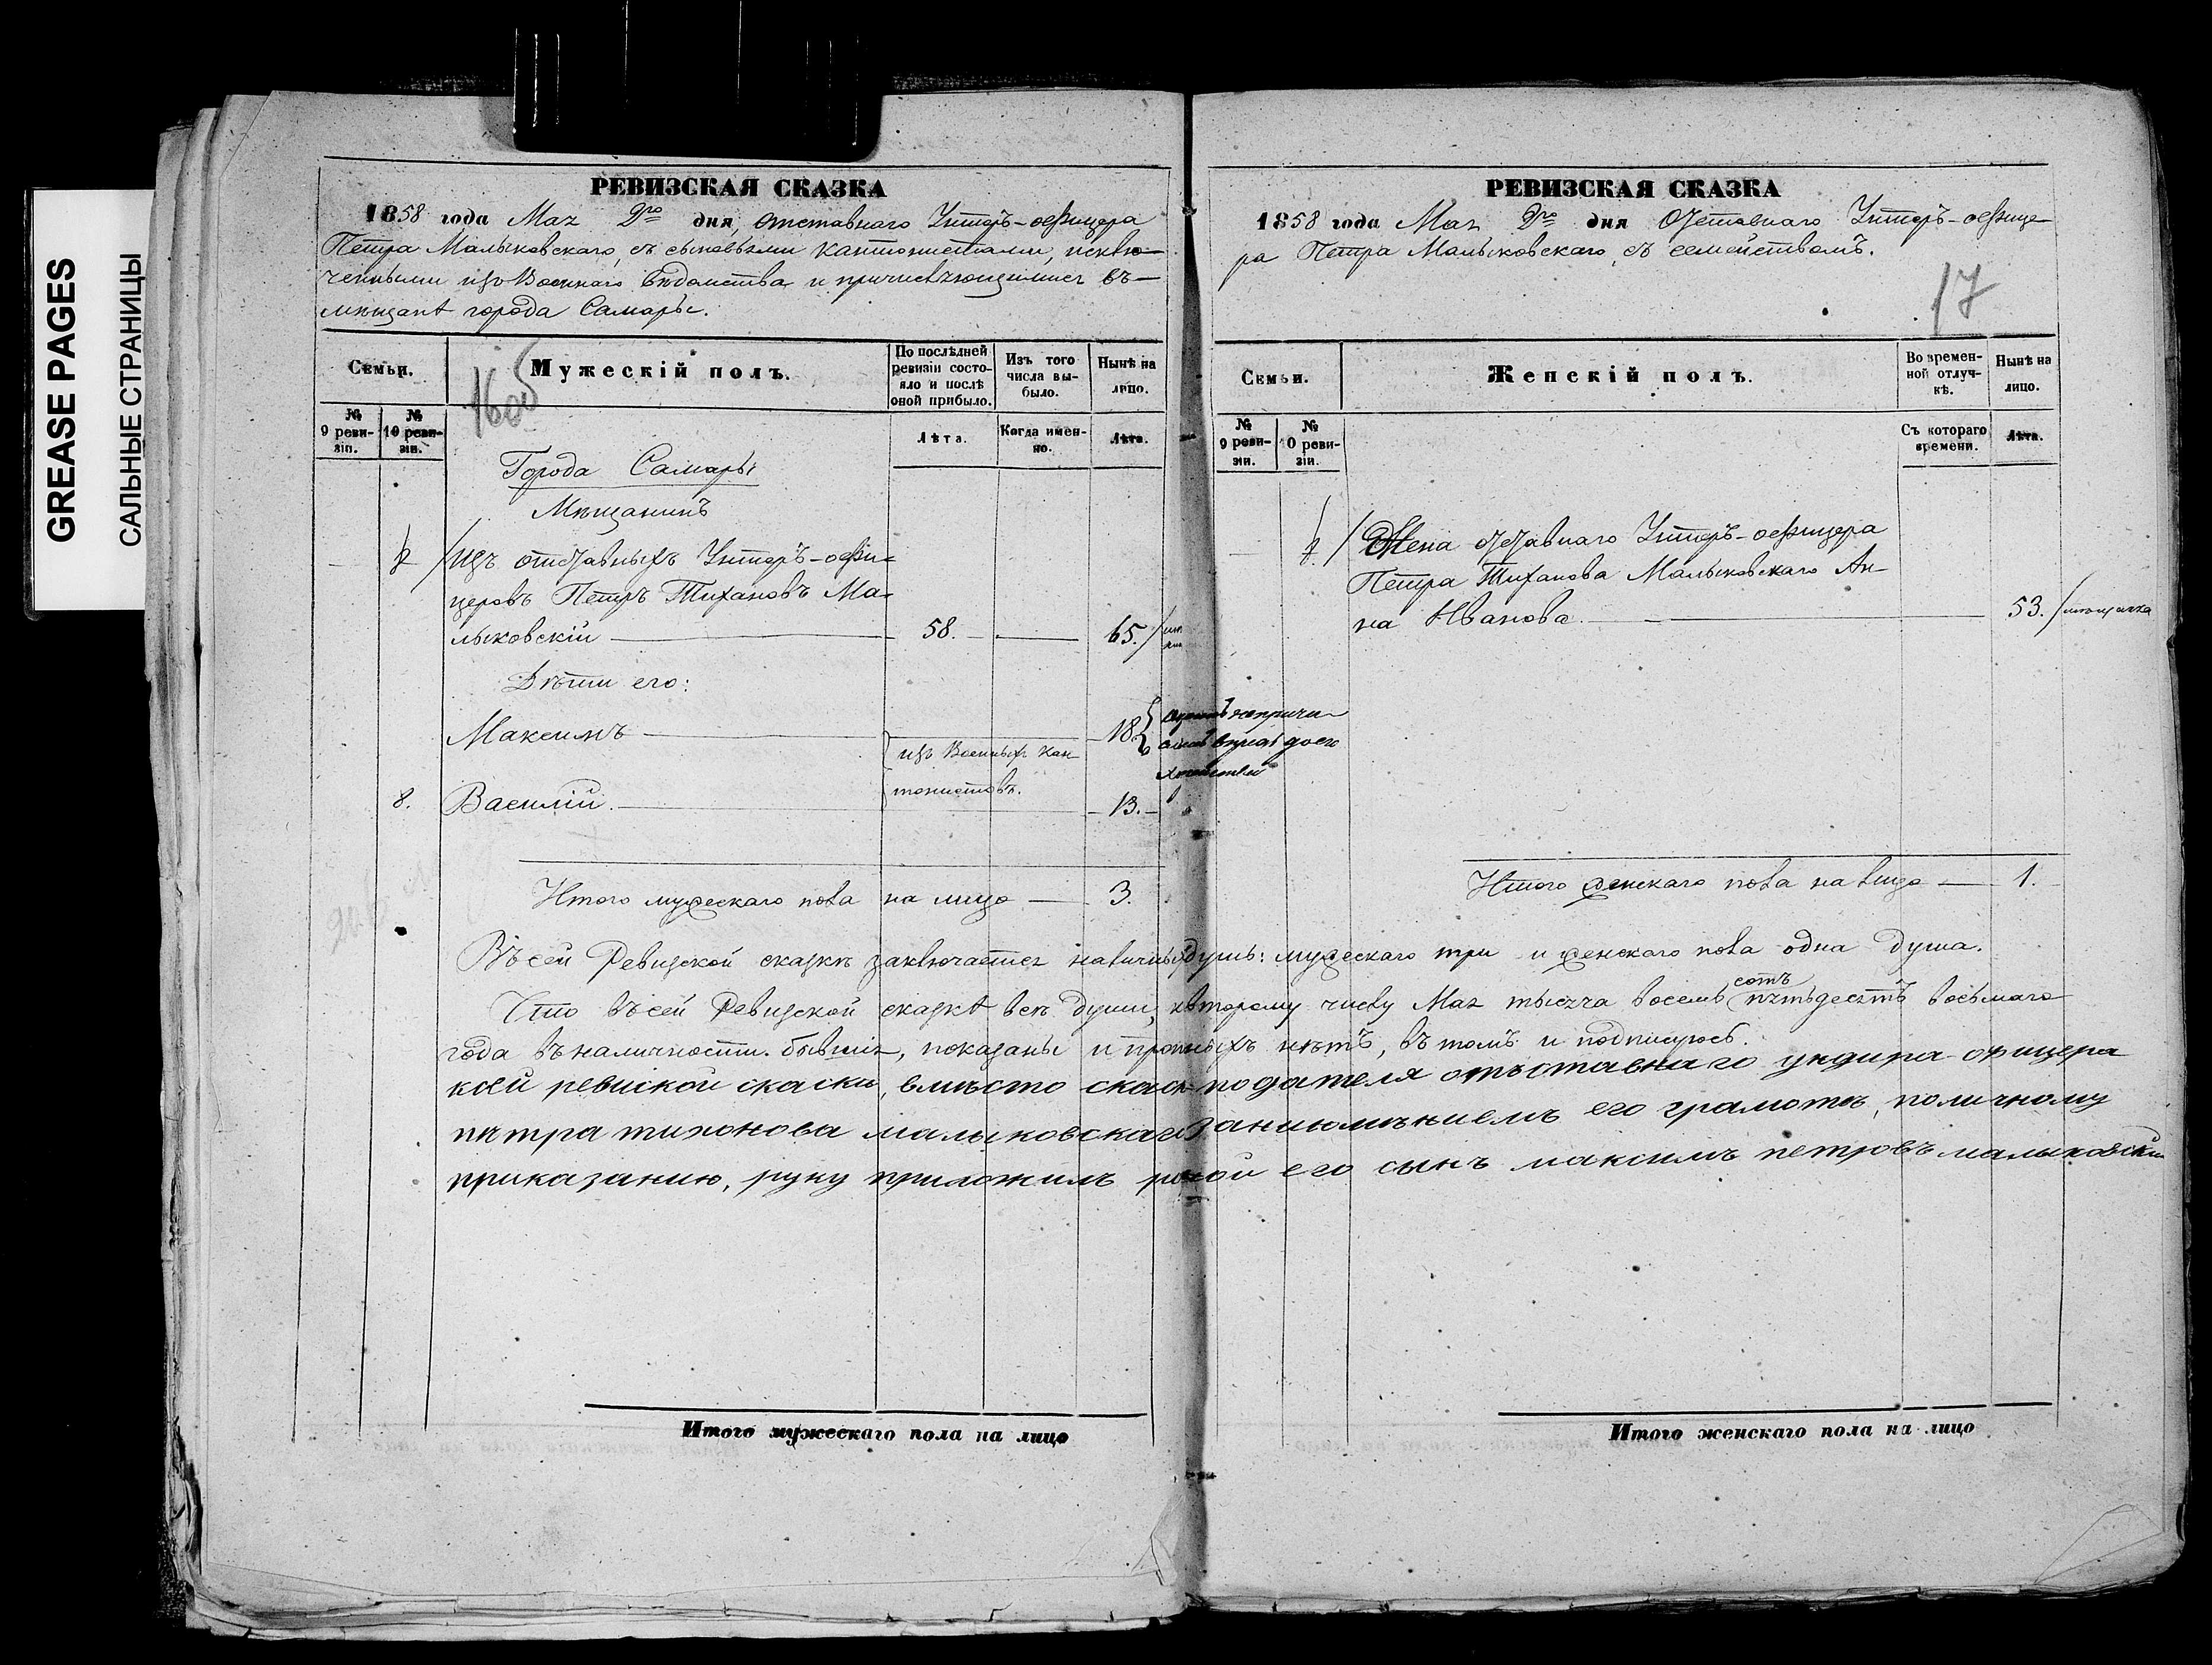 GREASE PAGES
САЛЬНЫЕ СТРАНИЦЫ
РЕВИЗСКАЯ СКАЗКА
1858 года Мая 2го дня, отставнаго Унтеръ-офицера
Петра Малыковскаго, съ сыновьями кантонистами, исклю-
ченными изъ Военнаго Вѣдомства и причисляющимися въ
мѣщане города Самары.
Семьи.
Мужескій полъ.
По послѣдней ревизіи состояло и послѣ оной прибыло.
Изъ того числа выбыло.
Нынѣ на лицо.
№ 9 ревизіи.
№ 10 ревизіи.
Лѣта.
Когда именно.
Лѣта.
1605
Города Самары
Мѣщанинъ
Изъ отставныхъ Унтеръ-офи-
церовъ Петръ Тихановъ Ма-
лыковскій 58. 65.
Дѣти его:
Максимъ 18.
изъ Военныхъ Кан
тонистовъ.
8. Василій. 13.
Итого мужескаго пола на лицо 3.
РЕВИЗСКАЯ СКАЗКА
1858 года Мая 2го дня Отставнаго Унтеръ-офице-
ра Петра Малыковскаго, съ семействомъ.
17
Семьи.
Женскій полъ.
Во временной отлучкѣ.
Нынѣ на лицо.
№ 9 ревизіи.
№ 10 ревизіи.
Съ котораго времени.
Лѣта.
Жена отставнаго Унтеръ-офицера
Петра Тиханова Малыковскаго Ан-
на Иванова. 53. мѣщанка
Итого женскаго пола на лицо 1.
Въ сей Ревизской сказкѣ заключается наличныхъ душъ: мужескаго три и женскаго пола одна душа.
Что въ сей Ревизской сказкѣ всѣ души, ко второму числу Мая тысяча восемь сотъ пятьдесятъ восьмаго
года въ наличности бывшія, показаны и прописныхъ нѣтъ, въ томъ и подписуюсь.
ксей ревиской скаски, вмѣсто скаскоподателя отъставнаго ундира-офицера
пѣтра тихонова малыковскаго занеюмѣниемъ его грамотѣ, поличному
приказанию, руку приложилъ родной его сынъ максимъ петровъ малыковский
Итого мужескаго пола на лицо
Итого женскаго пола на лицо